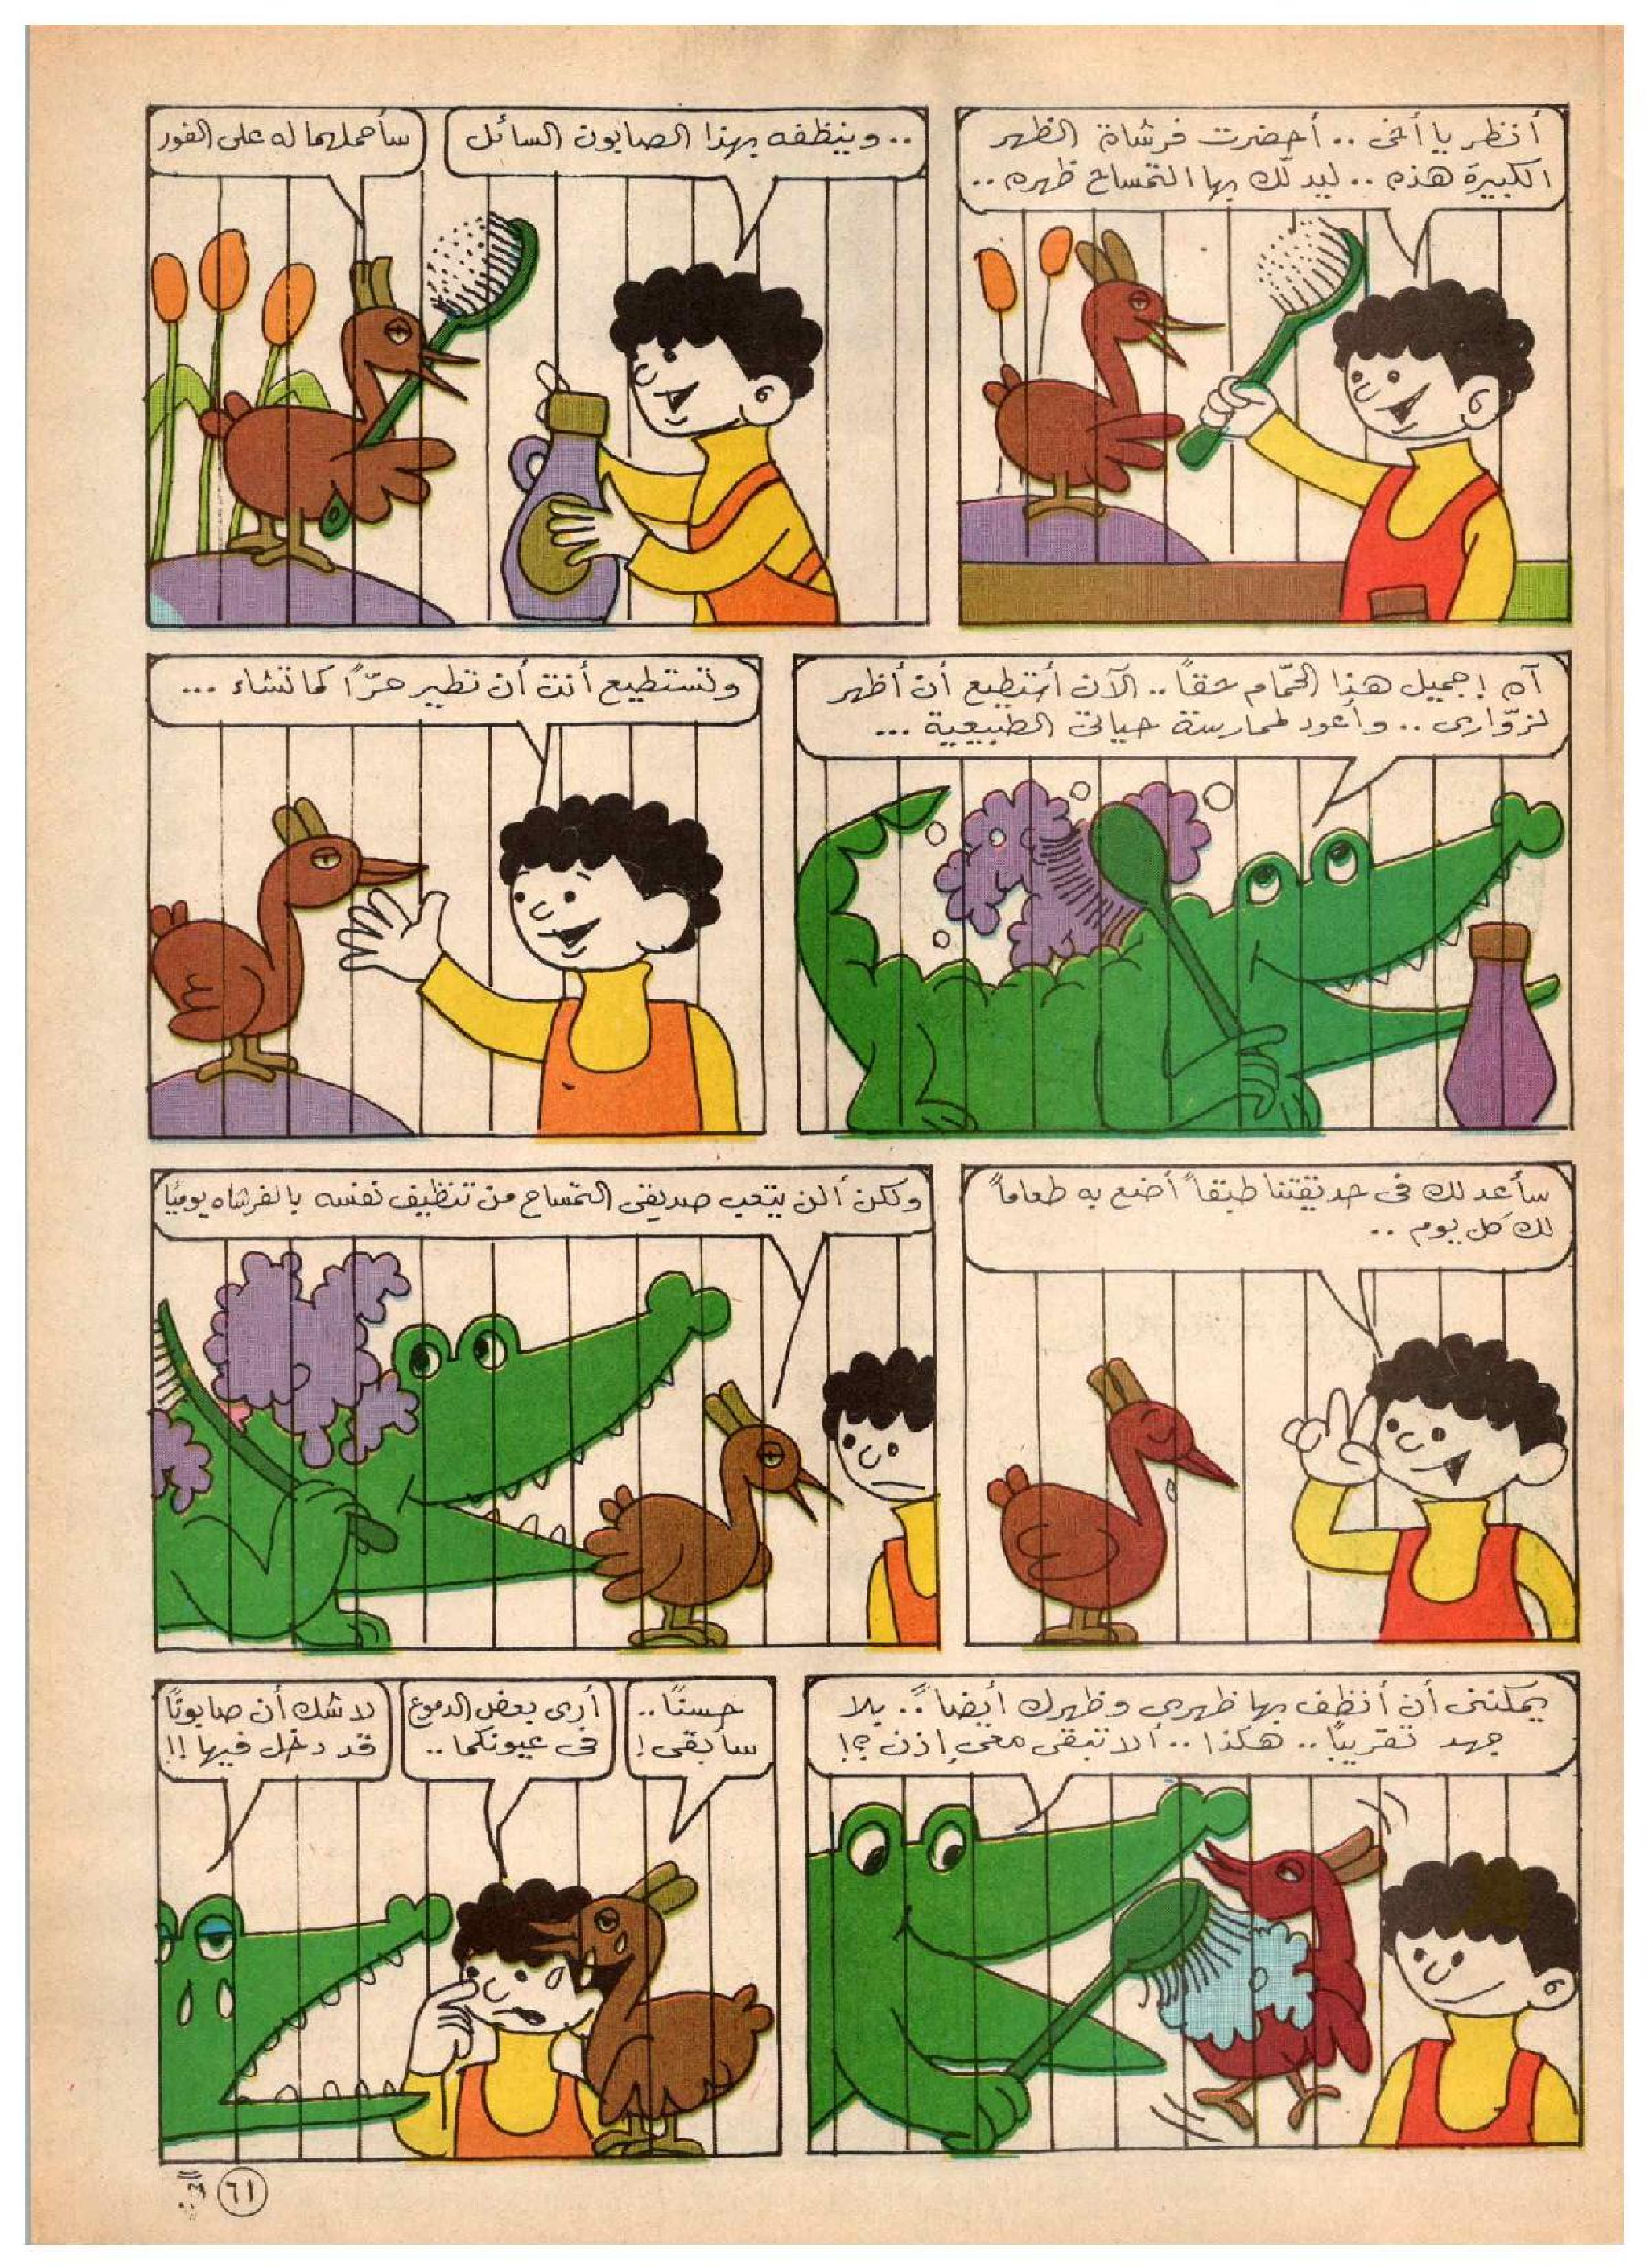 أنظر يا أخى .. أحضرت فرشاة الظهر
الكبيرة هذه .. ليدلّك بها التمساح ظهره ..
.. وينظفه بهذا الصابون السائل
سأحملهما له على الفور
آه ! جميل هذا الحمّام حقاً .. الآن أستطيع أن أظهر
لزوّارى .. وأعود لممارسة حياتى الطبيعية ...
وتستطيع أنت أن تطير حرّاً كما تشاء ...
سأعد لك فى حديقتنا طبقاً أضع به طعاماً
لك كل يوم ..
ولكن ألن يتعب صديقى التمساح من تنظيف نفسه بالفرشاه يوميًا
يمكننى أن أنظف بها ظهرى وظهرك أيضاً .. بلا
جهد تقريبًا .. هكذا .. ألا تبقى معى إذن ؟!
حسنًا ..
سأبقى !
أرى بعض الدموع
فى عيونكما ..
لا شك أن صابونًا
قد دخل فيها !!
٦١